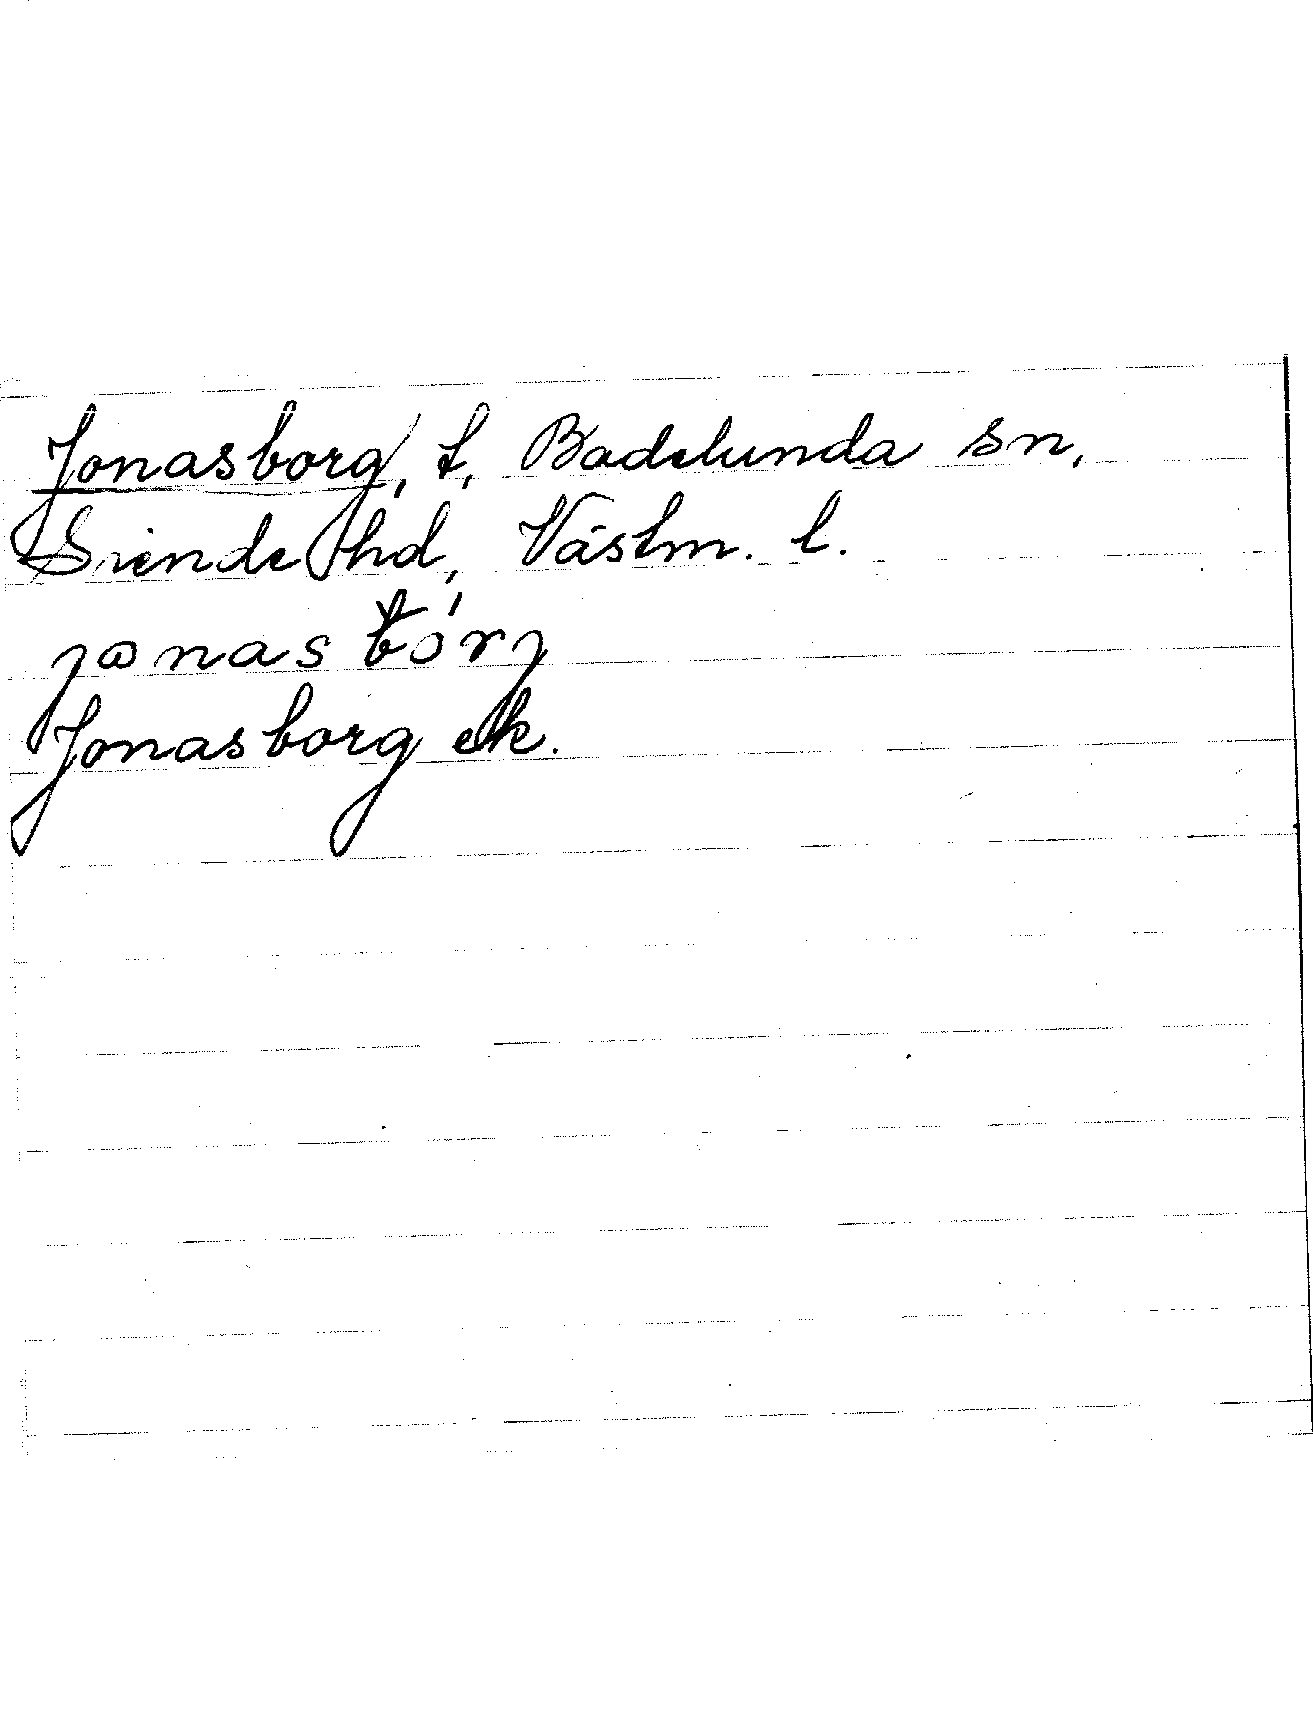 Jonasborg, t, Badelunda sn,
Siende hd, Västm. l.
jωnasbórj
Jonasborg ek.